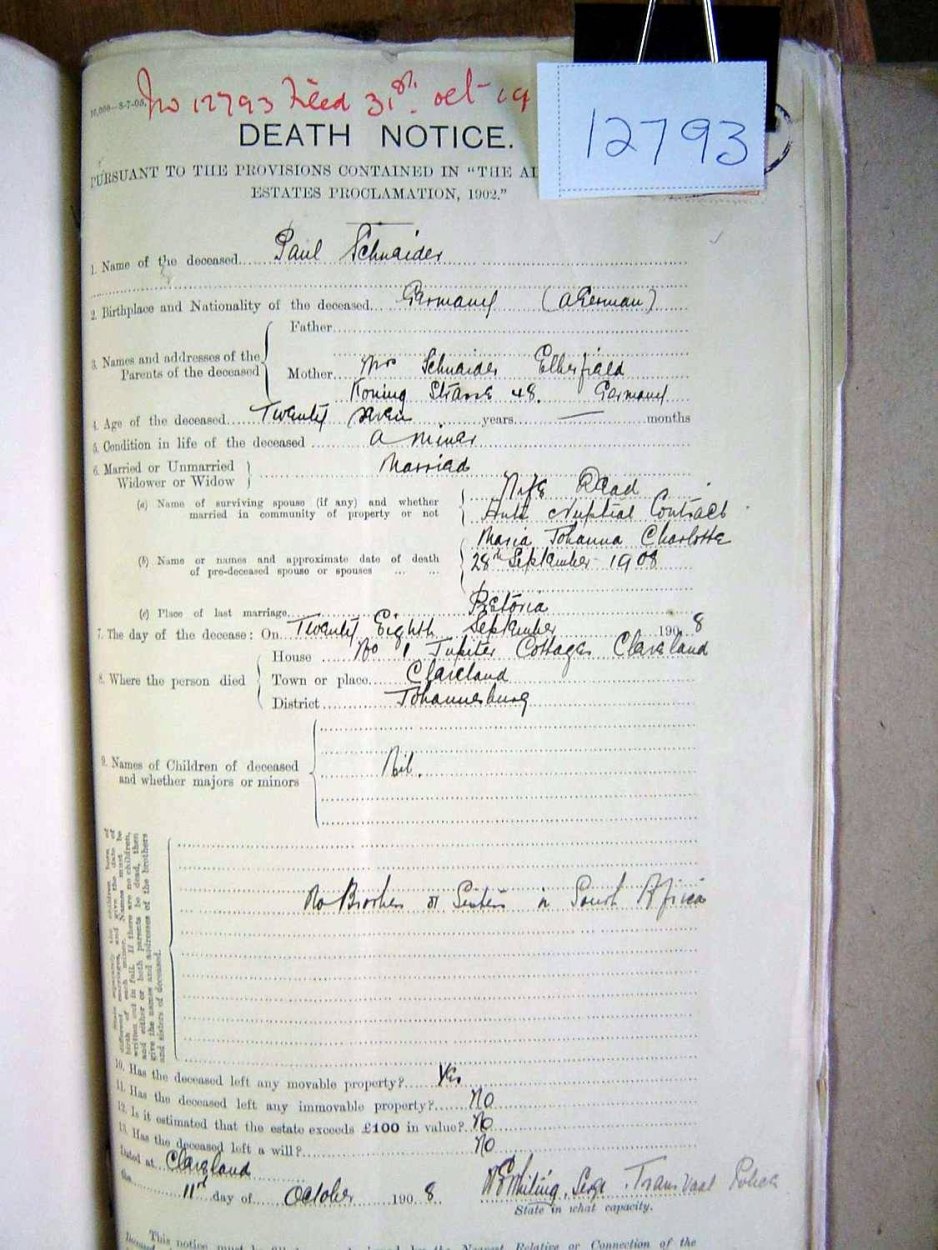 10,000—8-7-05.
No 12793 Filed 31st. Oct- 19
12793
DEATH NOTICE.
PURSUANT TO THE PROVISIONS CONTAINED IN "THE
ESTATES PROCLAMATION, 1902."
1. Name of the deceased Paul Schnaider
2. Birthplace and Nationality of the deceased Germany (a German)
3. Names and addresses of the Parents of the deceased
Father
Mother Mrs Schnaider Elberfield
Koning Strasse 48. Germany
4. Age of the deceased Twenty seven years — months
5. Condition in life of the deceased a miner
6. Married or Unmarried Widower or Widow Married
(a) Name of surviving spouse (if any) and whether Wife Dead
married in community of property or not Ante nuptial Contract
Maria Johanna Charlotte
(b) Name or names and approximate date of death 28th September 1908
of pre-deceased spouse or spouses ... ...
(c) Place of last marriage Pretoria
7. The day of the decease: On Twenty Eighth September 1908
8. Where the person died
House No 1 Jupiter Cottages Cleveland
Town or place Cleveland
District Johannesburg
9. Names of Children of deceased
and whether majors or minors Nil.
different marriages, and give the date of
birth of each minor. Names must be
written out in full. If there are no children,
and either or both parents be dead, then
give the names and addresses of the brothers
and sisters of deceased.
No Brothers or Sisters in South Africa
10. Has the deceased left any movable property? Yes
11. Has the deceased left any immovable property? No
12. Is it estimated that the estate exceeds £100 in value? No
13. Has the deceased left a will? No
Dated at Cleveland
the 11th day of October 1908 Whiting. Serg. Transvaal Police
State in what capacity.
This notice must be Nearest Relative or Connection of the